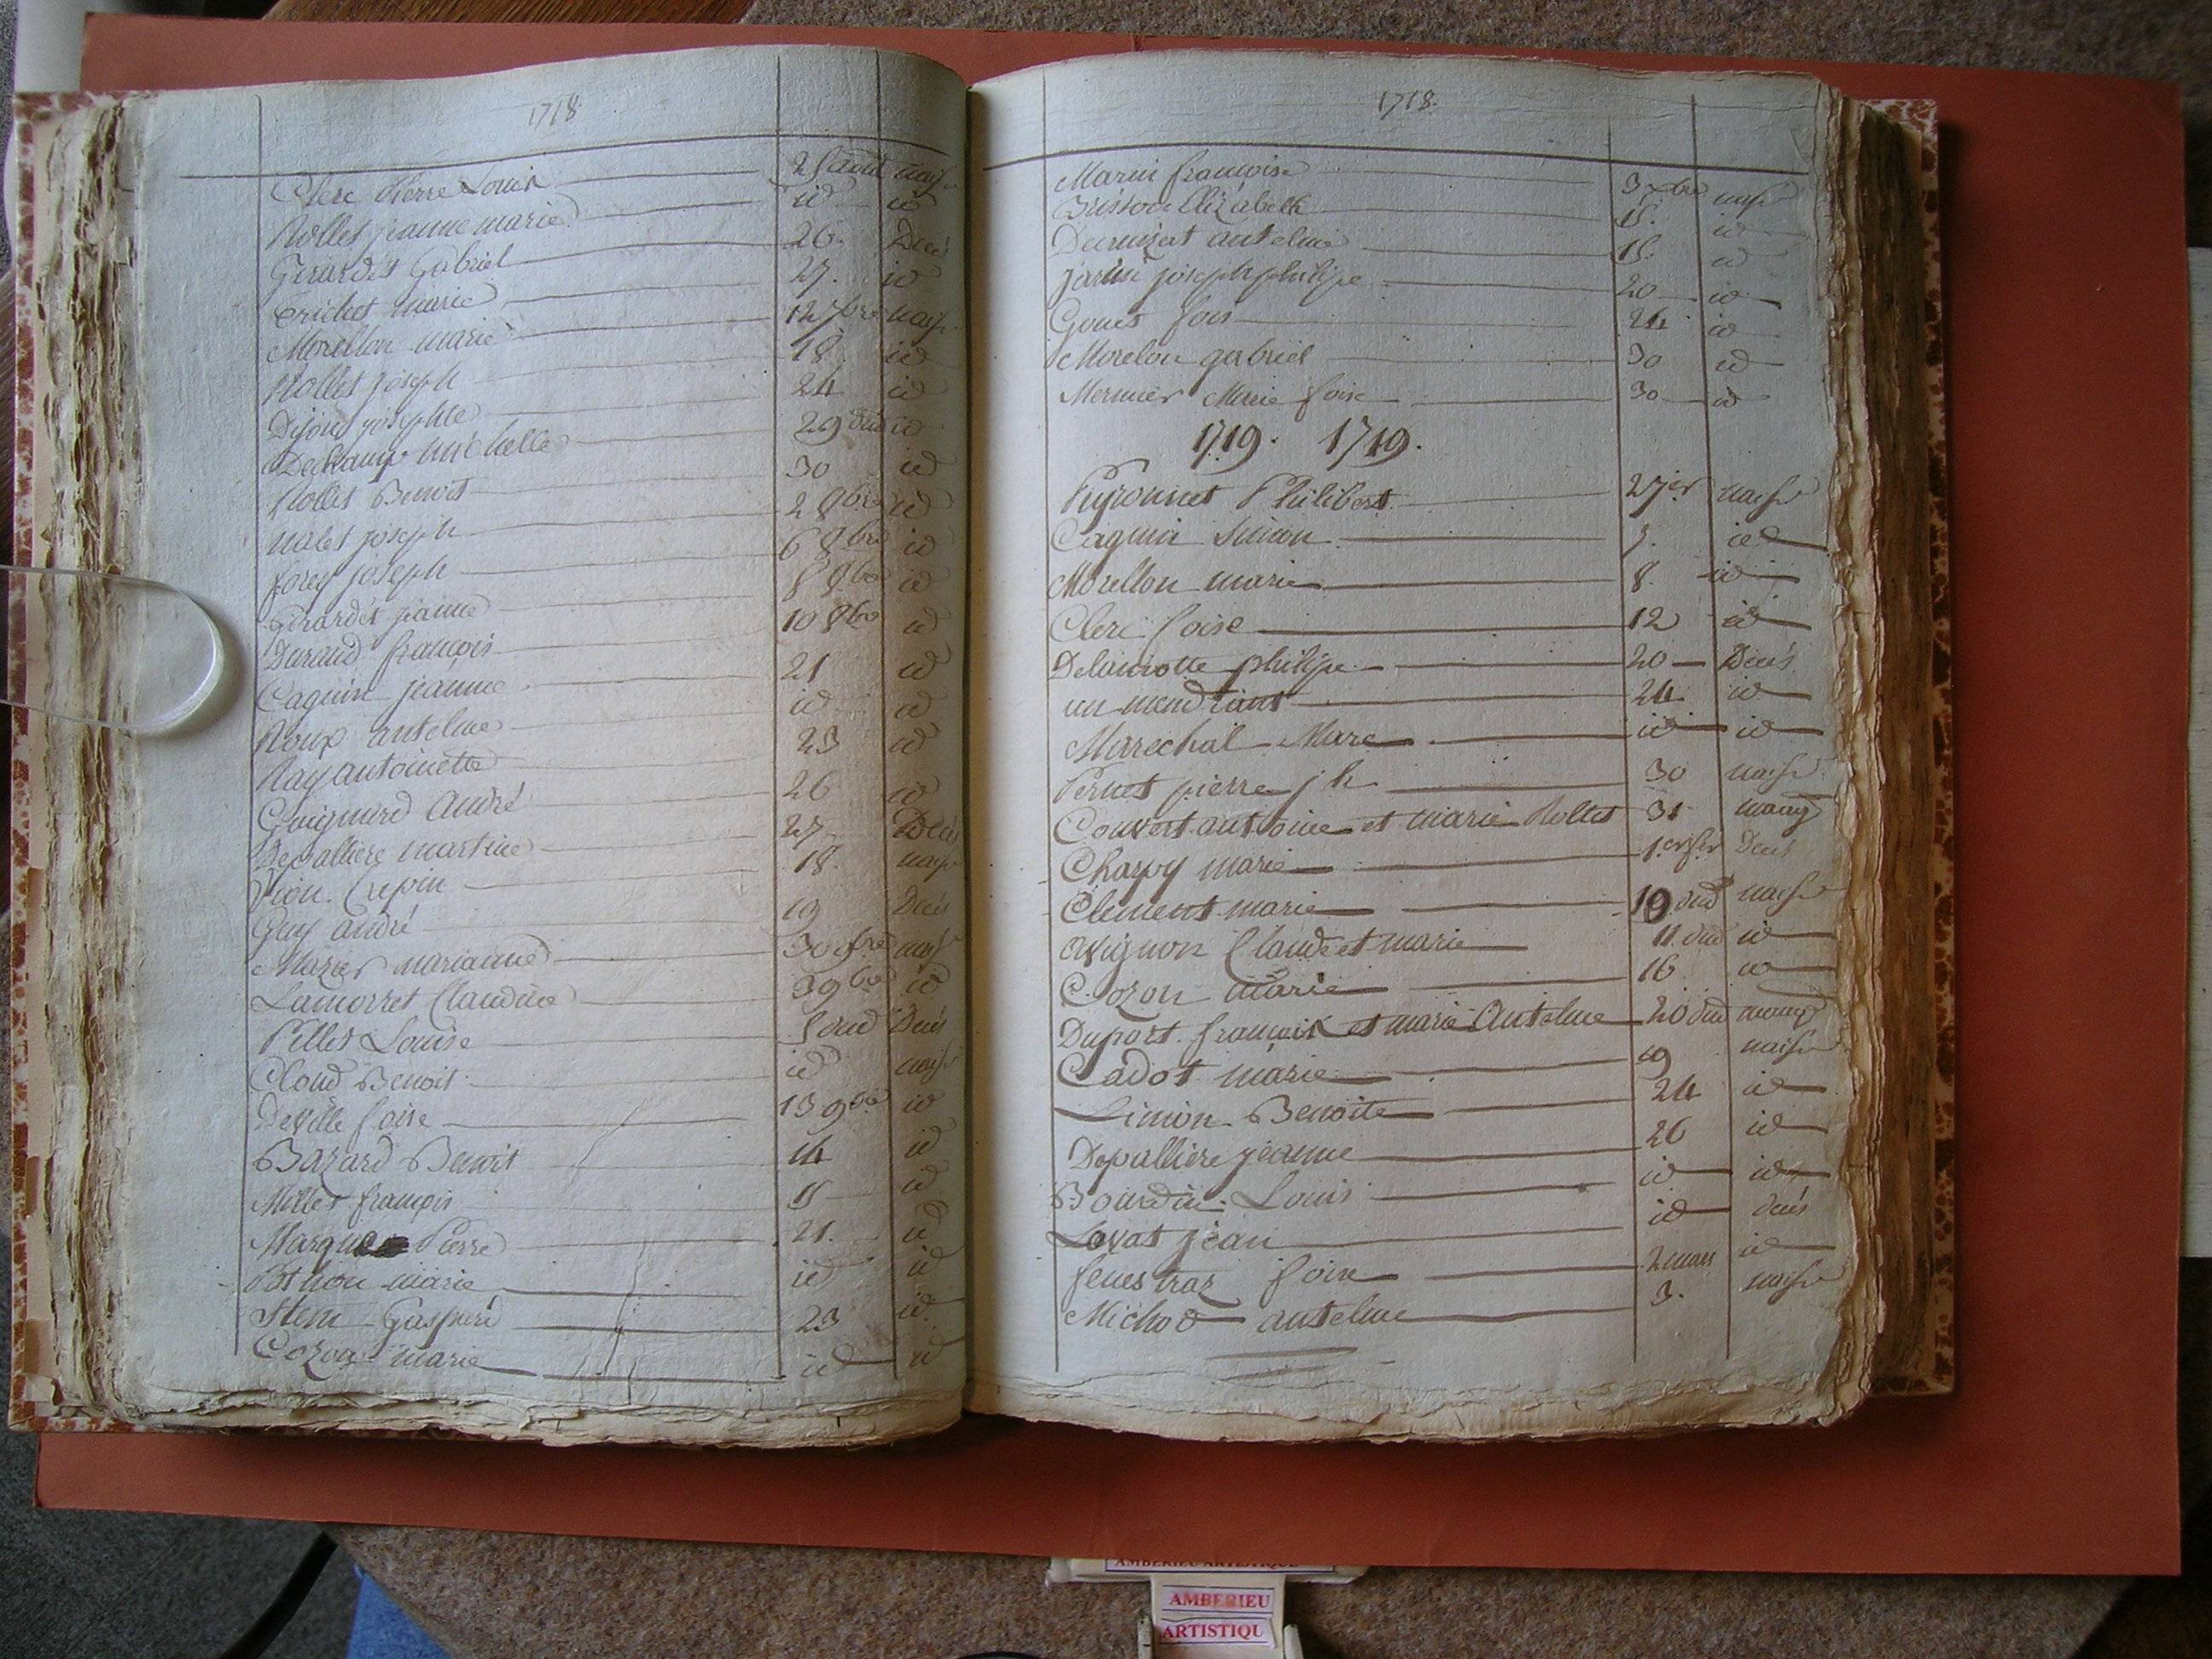 1718
Clerc Pierre Louis 25 aout naisce
Rollet jeanne marie id id
Girardet Gabriel 26. Decès
Trichet marie 27. id
Morellon marie 12 7bre naisce
Rollet joseph 18 id
Dijoux josephte 24 id
Dechamp michelle 29 dud id
Rollet Benoit 30 id
Nalet joseph 2 8bre id
forey joseph 6 8bre id
Girardet jeanne 8 8bre id
Durand françois 10 8bre id
Caguin jeanne 21 id
Roux antelme id id
Ray antoinette 23 id
Guignard André 26 id
Depalliere martine 27 Decès
Vion Crepin 18. naisce
Guy andré 19 Decès
Mazier marianne 30 8bre naisce
Lamorret Claudine 3 9bre id
Pillet Louise 5 dud Decès
Cloud Benoit id naisce
Deville foise 13 9bre id
Bazard Benoit 14 id
Millet françois 15 id
Margue Pierre 21. id
Pothon marie id id
Stem Gaspard 23 id
Cozon marie id id
1718.
Marin francoise 3 Xbre naisce
Brisson Elizabeth 15. id
Decruzat antelme 15. id
jarin joseph philipe 20 id
Gonet fois 24 id
Morelon gabriel 30 id
Mermier Marie foise 30 id
1719. 1719.
Peyronnet Philibert 2 jer naisce
Caguin Simon 5. id
Morellon marie 8. id
Clerc foise 12 id
Delamotte philipe 20 Decès
un mendiant 24 id
Marechal Marc id id
Pernet pierre jh 30 naisce
Couvert antoine et marie Rollet 31 mariage
Charvy marie 1er fer Decès
Clement marie 10 dud naisce
Avignon Claude et marie 11 dud id
Cozon marie 16 id
Duport françois et marie Antelme 20 dud mariage
Cadot marie 19 naisce
Simon Benoite 24 id
Depalliere jeanne 26 id
Bourdin Louis id id
Lovat jean id decès
fenestraz foise 2 mars id
Michod antelme 3. naisce
AMBERIEU ARTISTIQUE
AMBERIEU
ARTISTIQU